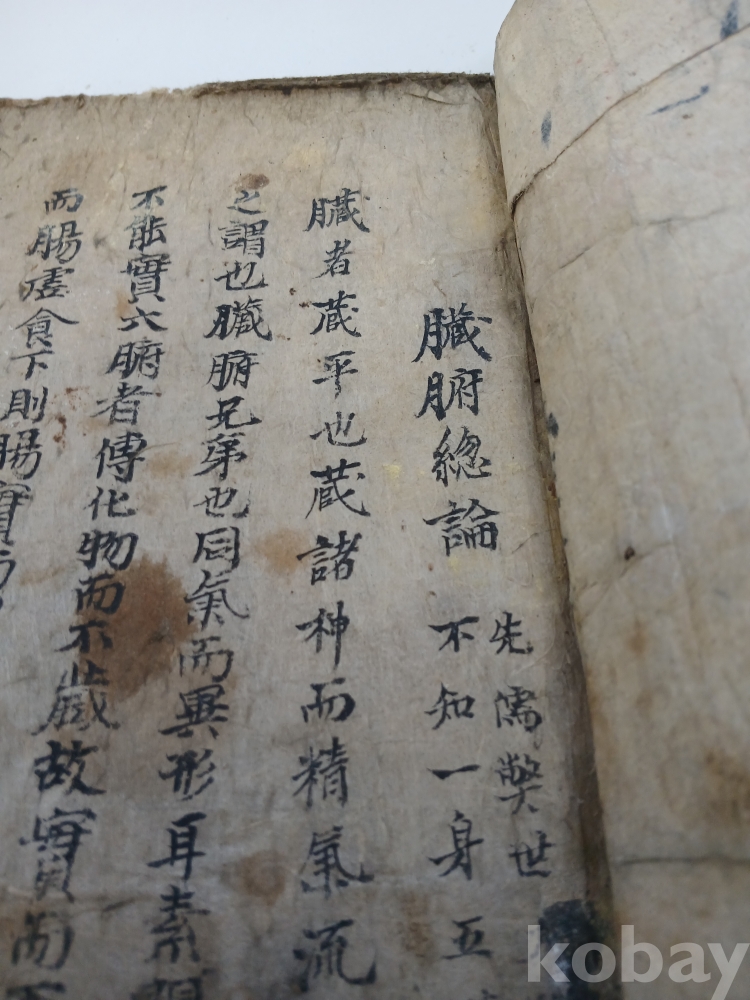 臟腑總論
先儒弊世
不知一身五
臟者蔵乎也蔵諸神而精氣流
之謂也臟腑兄弟也同氣而異形耳素
不能實六腑者傳化物而不蔵故實而不
而腸虛食下則腸實而
kobay